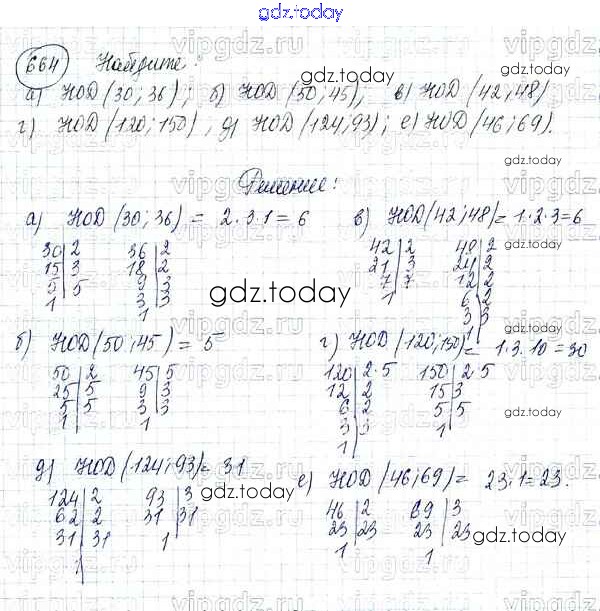 gdz.today
664 Найдите:
а) НОД (30; 36); б) НОД (50; 45); в) НОД (42; 48)
г) НОД (120; 150), д) НОД (124; 93); е) НОД (46; 69).
Решение:
а) НОД (30; 36) = 2·3·1 = 6
30 2 36 2
15 3 18 2
5 5 9 3
1 3 3
1
в) НОД (42; 48) = 1·2·3=6
42 2 48 2
21 3 24 2
7 7 12 2
1 6 2
3 3
1
gdz.today
б) НОД (50; 45) = 5
50 2 45 5
25 5 9 3
5 5 3 3
1 1
г) НОД (120; 150) = 1·3·10 = 30
120 2·5 150 2·5
12 2 15 3
6 2 5 5
3 3 1
1
д) НОД (124; 93) = 31
124 2 93 3
62 2 31 31
31 31 1
1
е) НОД (46; 69) = 23·1=23.
46 2 69 3
23 23 23 23
1 1
gdz.today